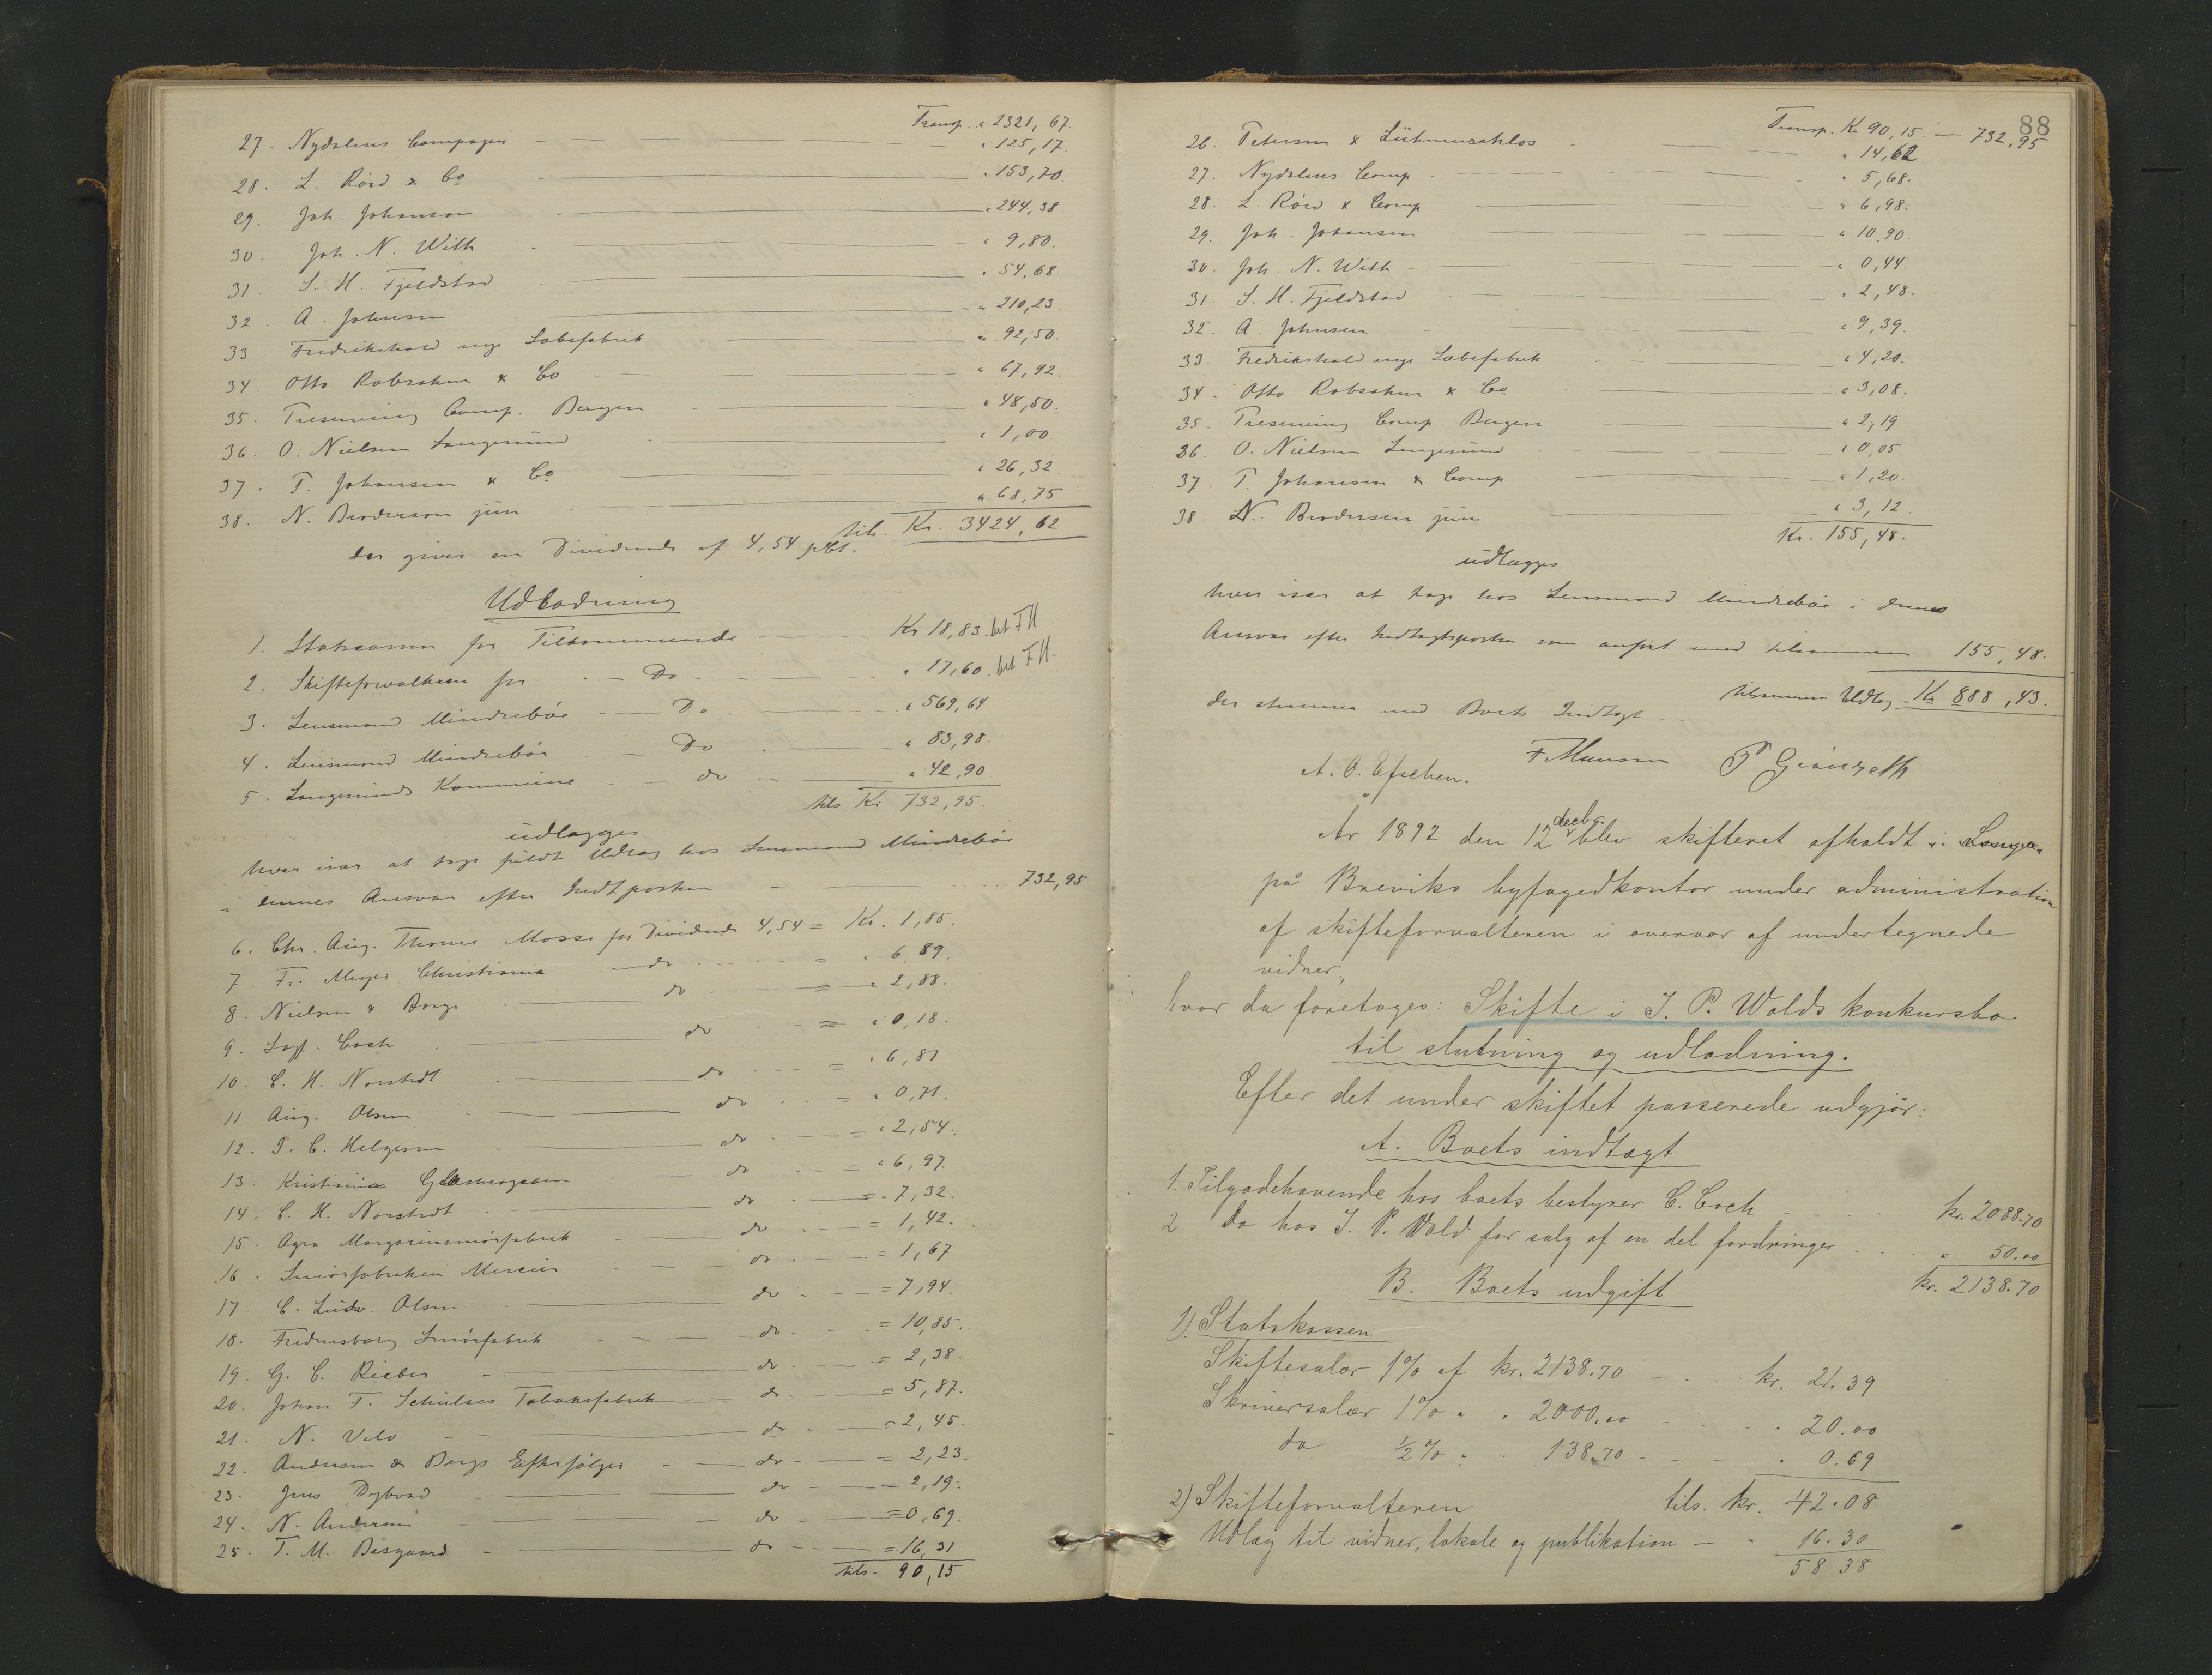 Transp. " 2321,67.
27. Nydalens Compagni " 125,17.
28. L. Röed & Co " 153,70.
29. Joh. Johanson " 244,38
30. Joh. N. With " 9,80.
31. S. H. Fjeldstad " 54,68.
32. A. Johnsen " 210,23.
33 Fredrikshald nye Sæbefabrik " 92,50.
34. Otto Robsahm & Co " 67,92.
35. Preserving Comp. Bergen " 48,50.
36. O. Nielsen Langesund " 1,00.
37. T. Johansen & Co " 26,32
38. N. Brodersen jun " 68,75
tils. Kr. 3424,62
der giver en Dividende af 4,54 pCt.
Udlodning
1. Statscassen for Tilkommende Kr 18,83. bet FM
2. Skifteforvalteren for Do " 17,60. bet FM.
3. Lensmand Mindrebøe Do " 569,64
4. Lensmand Mindrebøe Do " 83,98.
5. Langesunds Kommune do " 42,90
tils Kr 732,95.
udlægges
hver især at tage fuldt Udlæg hos Lensmand Mindrebøe
i dennes Ansvar efter Indt.posten 732,95
6. Chr. Aug. Thorne Moss for Dividende 4,54 = Kr. 1,85.
7. Fr. Meyer Christiania do = " 6,89.
8. Nielsen & Borge do = " 2,88.
9. Sagf. Coch do = " 0,18.
10. C. H. Norstedt do = " 6,81
11 Aug. Olsen do = " 0,71.
12. P. C. Helgesen do = " 2,54.
13. Kristiania Glasmagasin do = " 6,97.
14. C. H. Norstedt do = " 7,32.
15. Agra Margarinsmörfabrik do = 1,42.
16. Smörfabriken Mercur do = 1,67
17 C. Ludv. Olsen do = 7,94.
18. Fredensborg Smörfabrik do = 10,85.
19. G. C. Rieber do = 2,38.
20. Johan F. Schulzes Tobaksfabrik do = 5,87.
21. N. Veld do = 2,45.
22. Andersen & Bergs Efterfölger do = 2,23.
23. Jens Dybvad do = 2,19.
24. N. Andersen do = 0,69.
25. T. M. Bisgaard do = 16,31
tils. 90,15
88
Transp. Kr 90,15. — 732,95
26. Petersen & Lühmenschlos " 14,62
27. Nydalens Comp " 5,68.
28. L. Röed & Comp " 6,98.
29. Joh. Johansen " 10,90.
30. Joh. N. With " 0,44.
31. S. H. Fjeldstad " 2,48.
32. A. Johnsen " 9,39.
33. Fredrikshald nye Sæbefabrik " 4,20.
34. Otto Robsahm & Co " 3,08.
35. Preserving Comp. Bergen " 2,19
36. O. Nielsen Langesund " 0,05
37. T. Johansen & Comp " 1,20.
38. N. Brodersen jun " 3,12.
Kr. 155,48.
udlægges
hver især at tage hos Lensmand Mindrebøe i dennes
Ansvar efter Indtægtsposten som anfört med tilsammen 155,48.
tilsammen Udlæg Kr 888,43.
der stemmer med Boets Indtægt
A. O. Efschen. F. Munson
År 1892 den 12 decbr. blev skifteret afholdt i Lange
på Breviks byfogedkontor under administration
af skifteforvalteren i overvær af undertegnede
vidner,
hvor da foretoges: Skifte i J. P. Wolds konkursbo
til slutning og udlodning.
Efter det under skiftet passerede udgjör:
A. Boets indtægt
1. Tilgodehavende hos boets bestyrer C. Coch kr. 2088.70
2 Do hos J. P. Wold for salg af en del fordringer " 50.00
kr. 2138.70
B. Boets udgift
1). Statskassen
Skiftesalær 1% af kr. 2138.70 kr. 21.39
Skriversalær 1% " " 2000.00 " 20.00
do ½% " " 138.70 " 0.69
tils. kr. 42.08
2) Skifteforvalteren
Udlæg til vidner, lokale og publikation — " 16.30
58 38